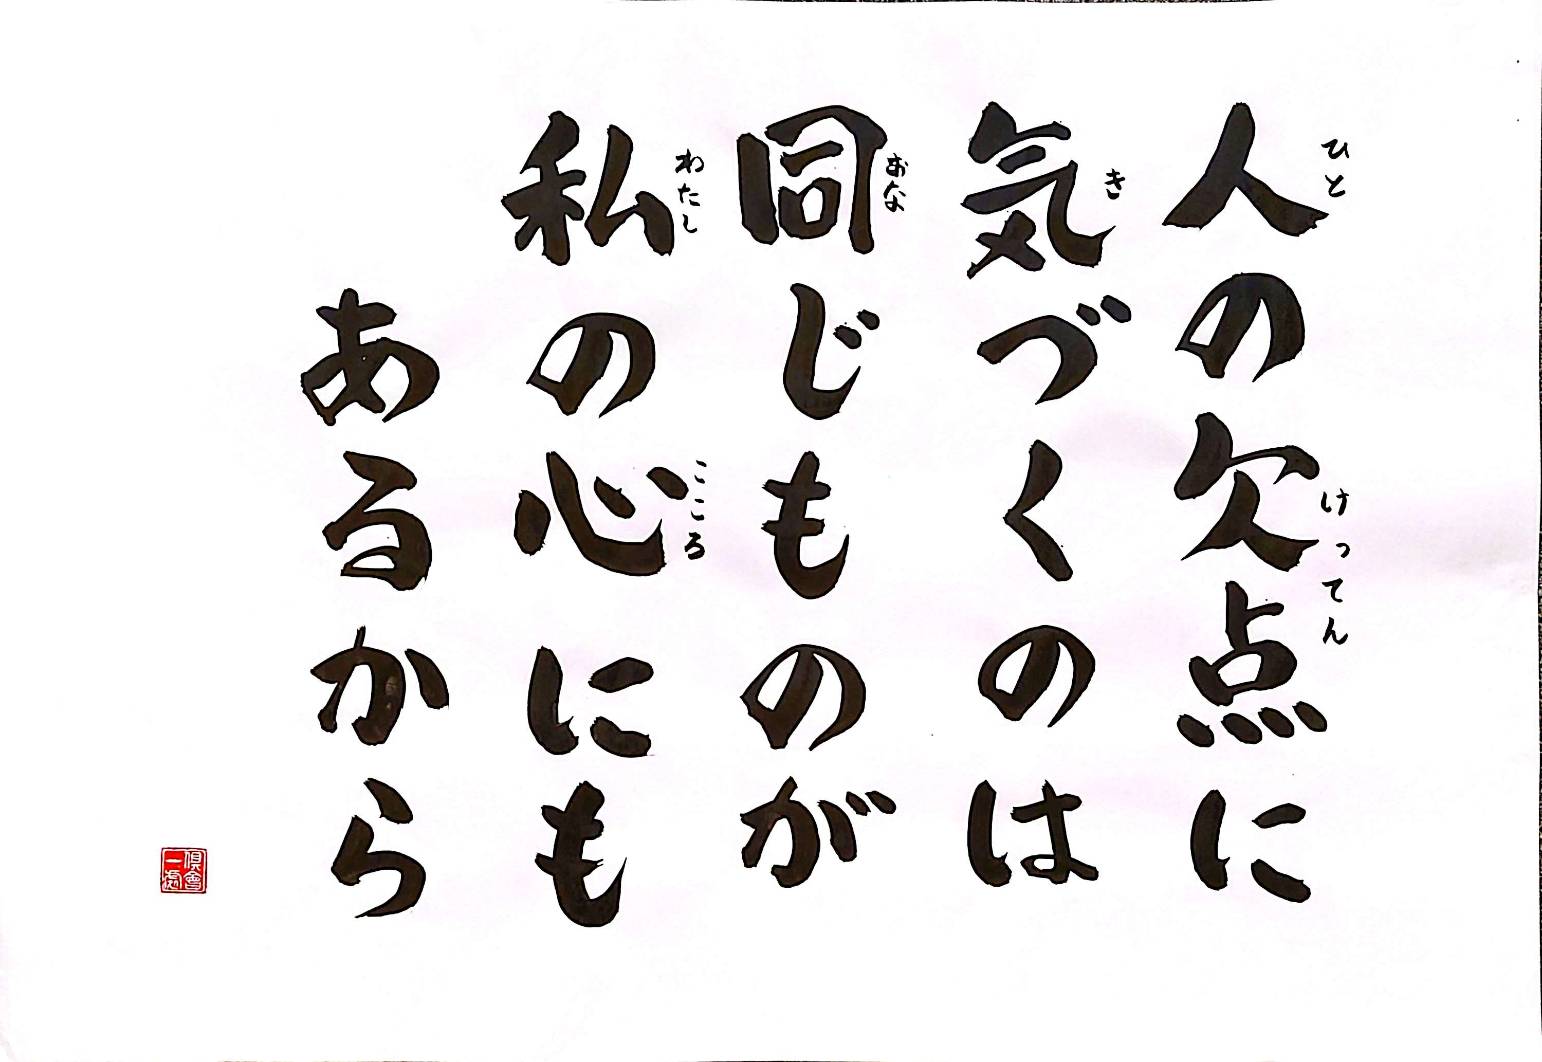 人の欠点に
ひと
けってん
気づくのは
き
同じものが
おな
私の心にも
わたし
こころ
あるから
倶會
一処